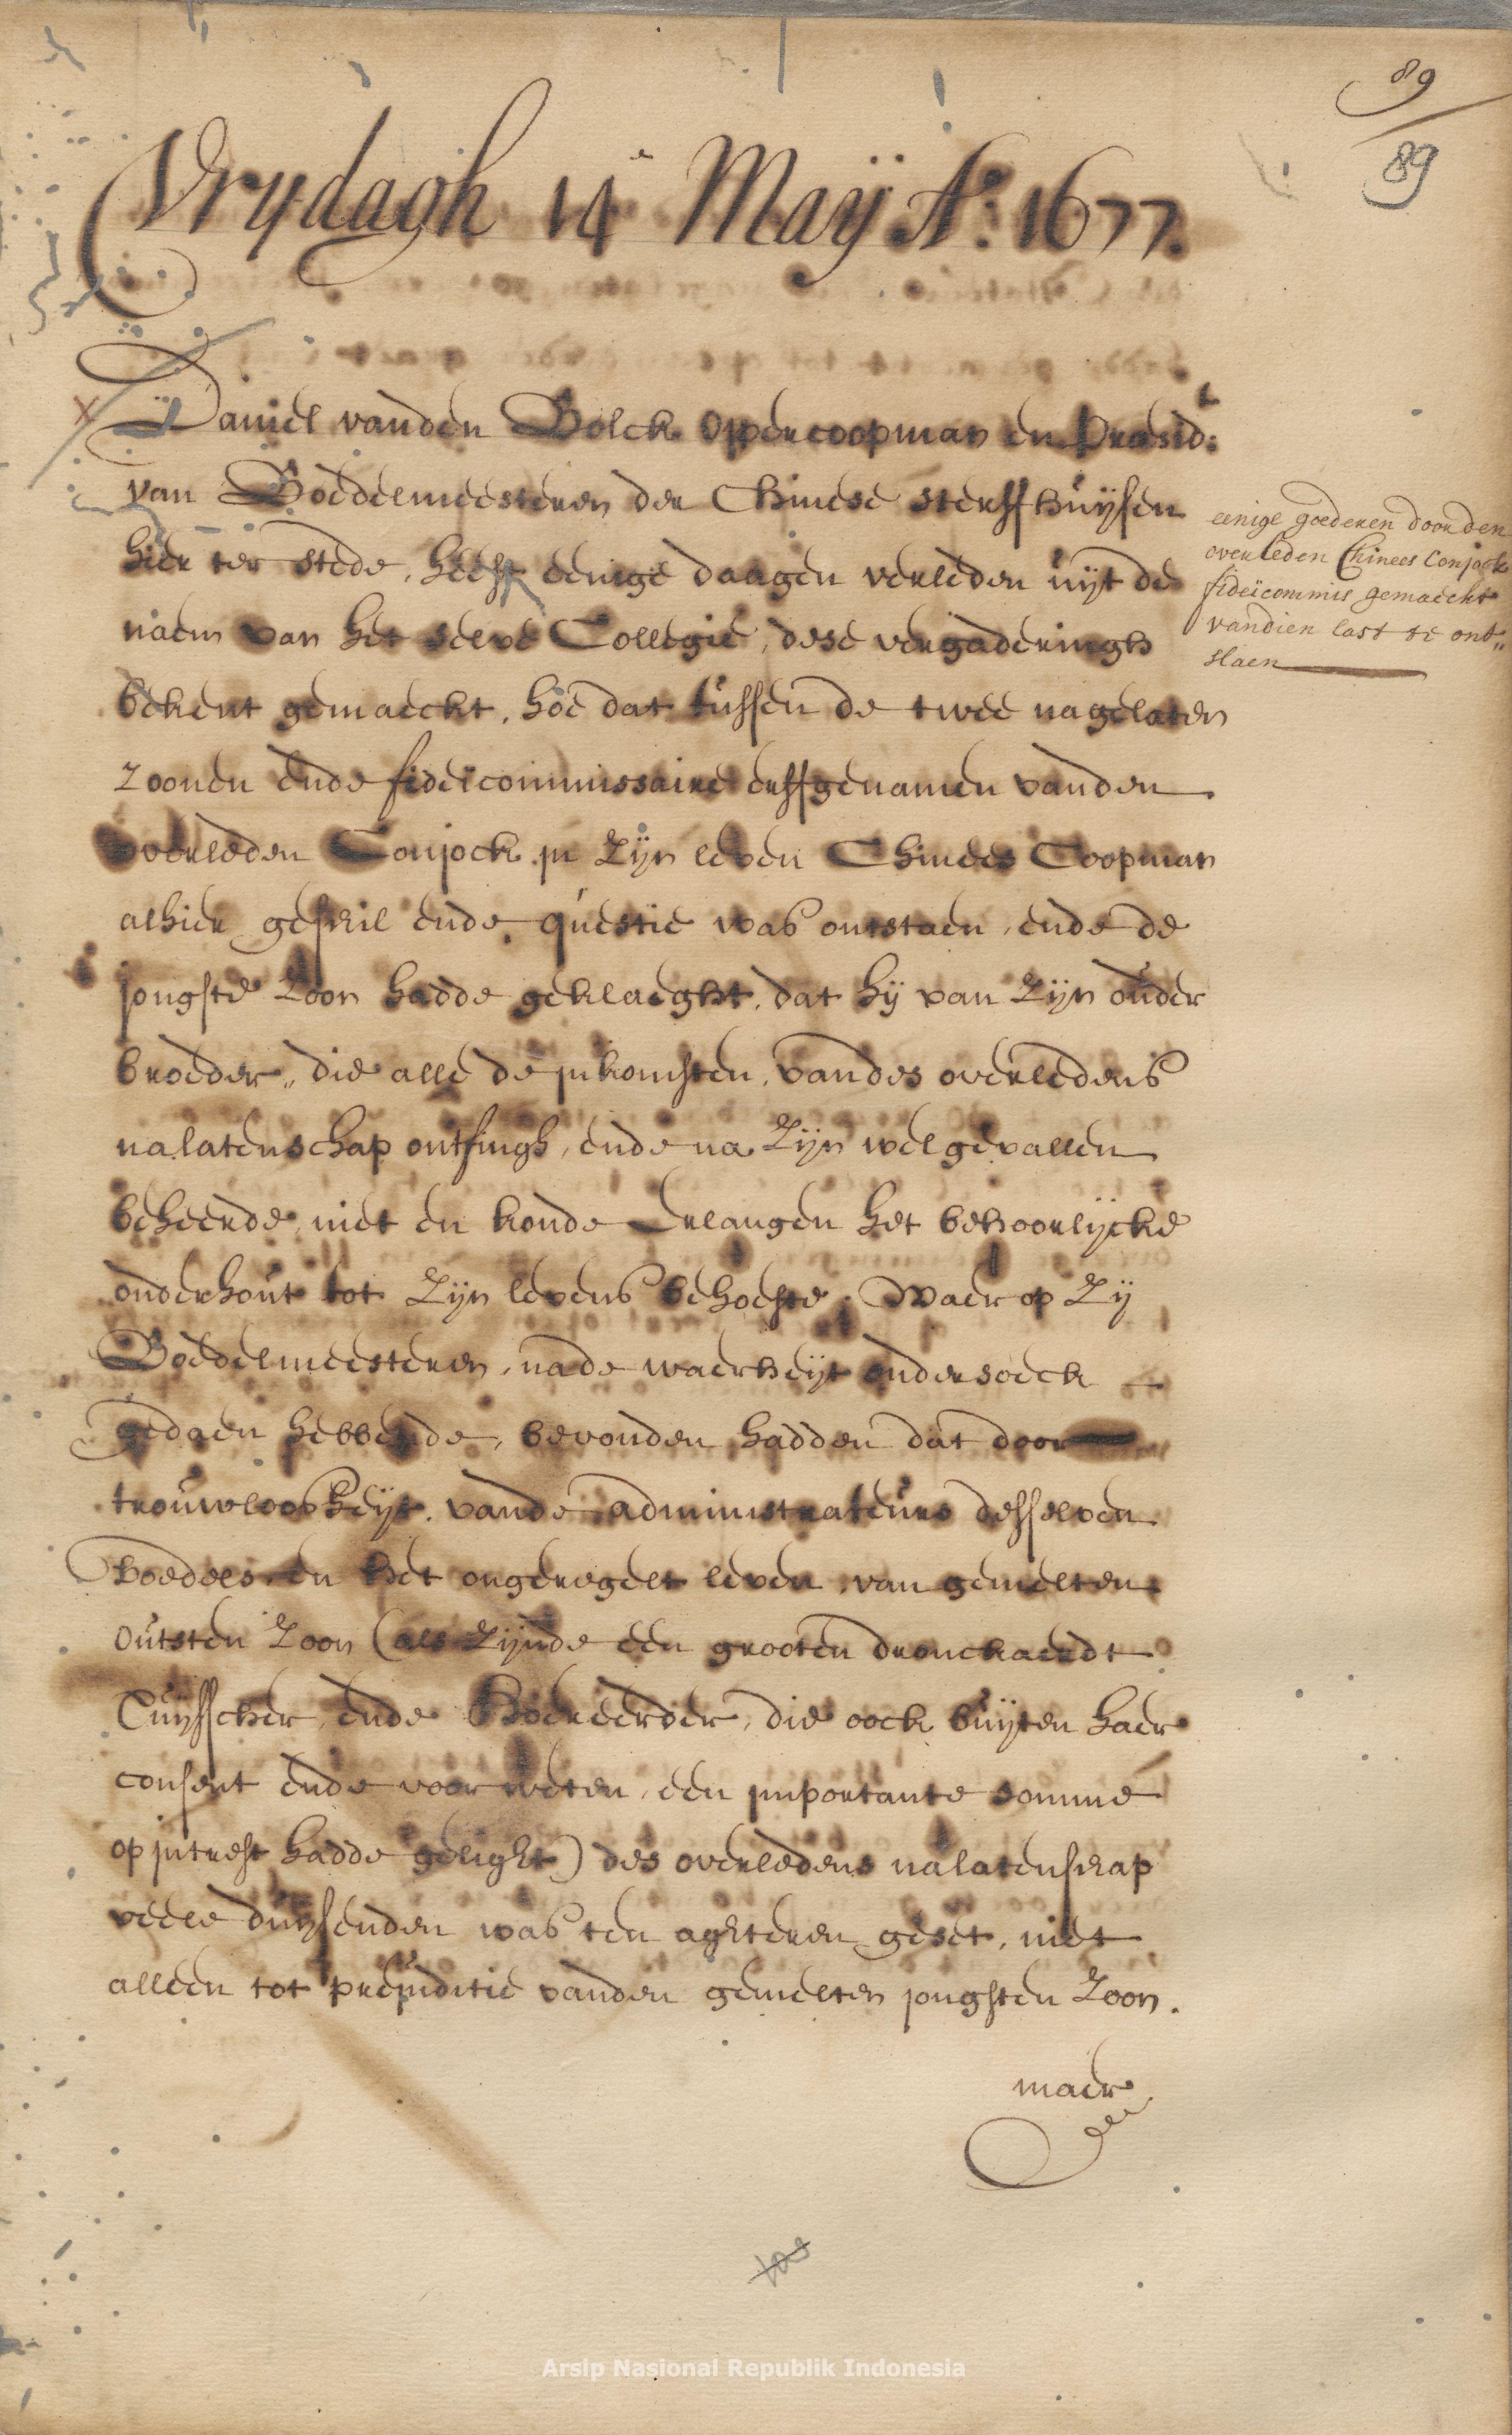 89
89
Vrydagh 14e Maÿ Ao: 1677.
Daniel vanden Bolck oppercoopman en Præsidt:
van Boedelmeesteren der Chinese sterffhuijsen
hier ter stede, heeft eenige daagen verleden uÿt de
naem van het selve Collegie, dese vergaderingh
bekent gemaeckt, hoe dat tussen de twee nagelaten
zoonen ende fideïcommissaire erffgenamen vanden
overleden Conjock in Zijn leven Chinees Coopman
alhier geschil ende questie was ontstaen, ende de
jongste Zoon hadde geklaeght, dat hÿ van Zijn ouder
broeder, die alle de inkomsten, vandes overledens
nalatenschap ontfingh, ende na Zijn welgevallen
beheerde, niet en konde erlangen het behoorlijcke
onderhout tot Zijn levens behoefte, Waer op Zÿ
Boedelmeesteren, nade waerheÿt ondersoeck
gedaen hebbende, bevonden hadden dat door
trouwloosheÿt vande administrateurs desselven
boedels en het ongeregelt leven, van gemelten
outsten Zoon (als Zijnde een grooten dronckaerdt
Tuÿsscher, ende Hoereerder, die oock buÿten haer
consent ende voorweten, een importante somme
op intrest hadde gelight) des overledens nalatenschap
veele duÿsenden was ten aghteren geset, niet
alleen tot prejuditie vanden gemelten jongsten Zoon.
maer
eenige goederen door den
overleden Chinees Conjock
fideïcommis gemaeckt
vandien last te ont„
slaen
Arsip Nasional Republik Indonesia